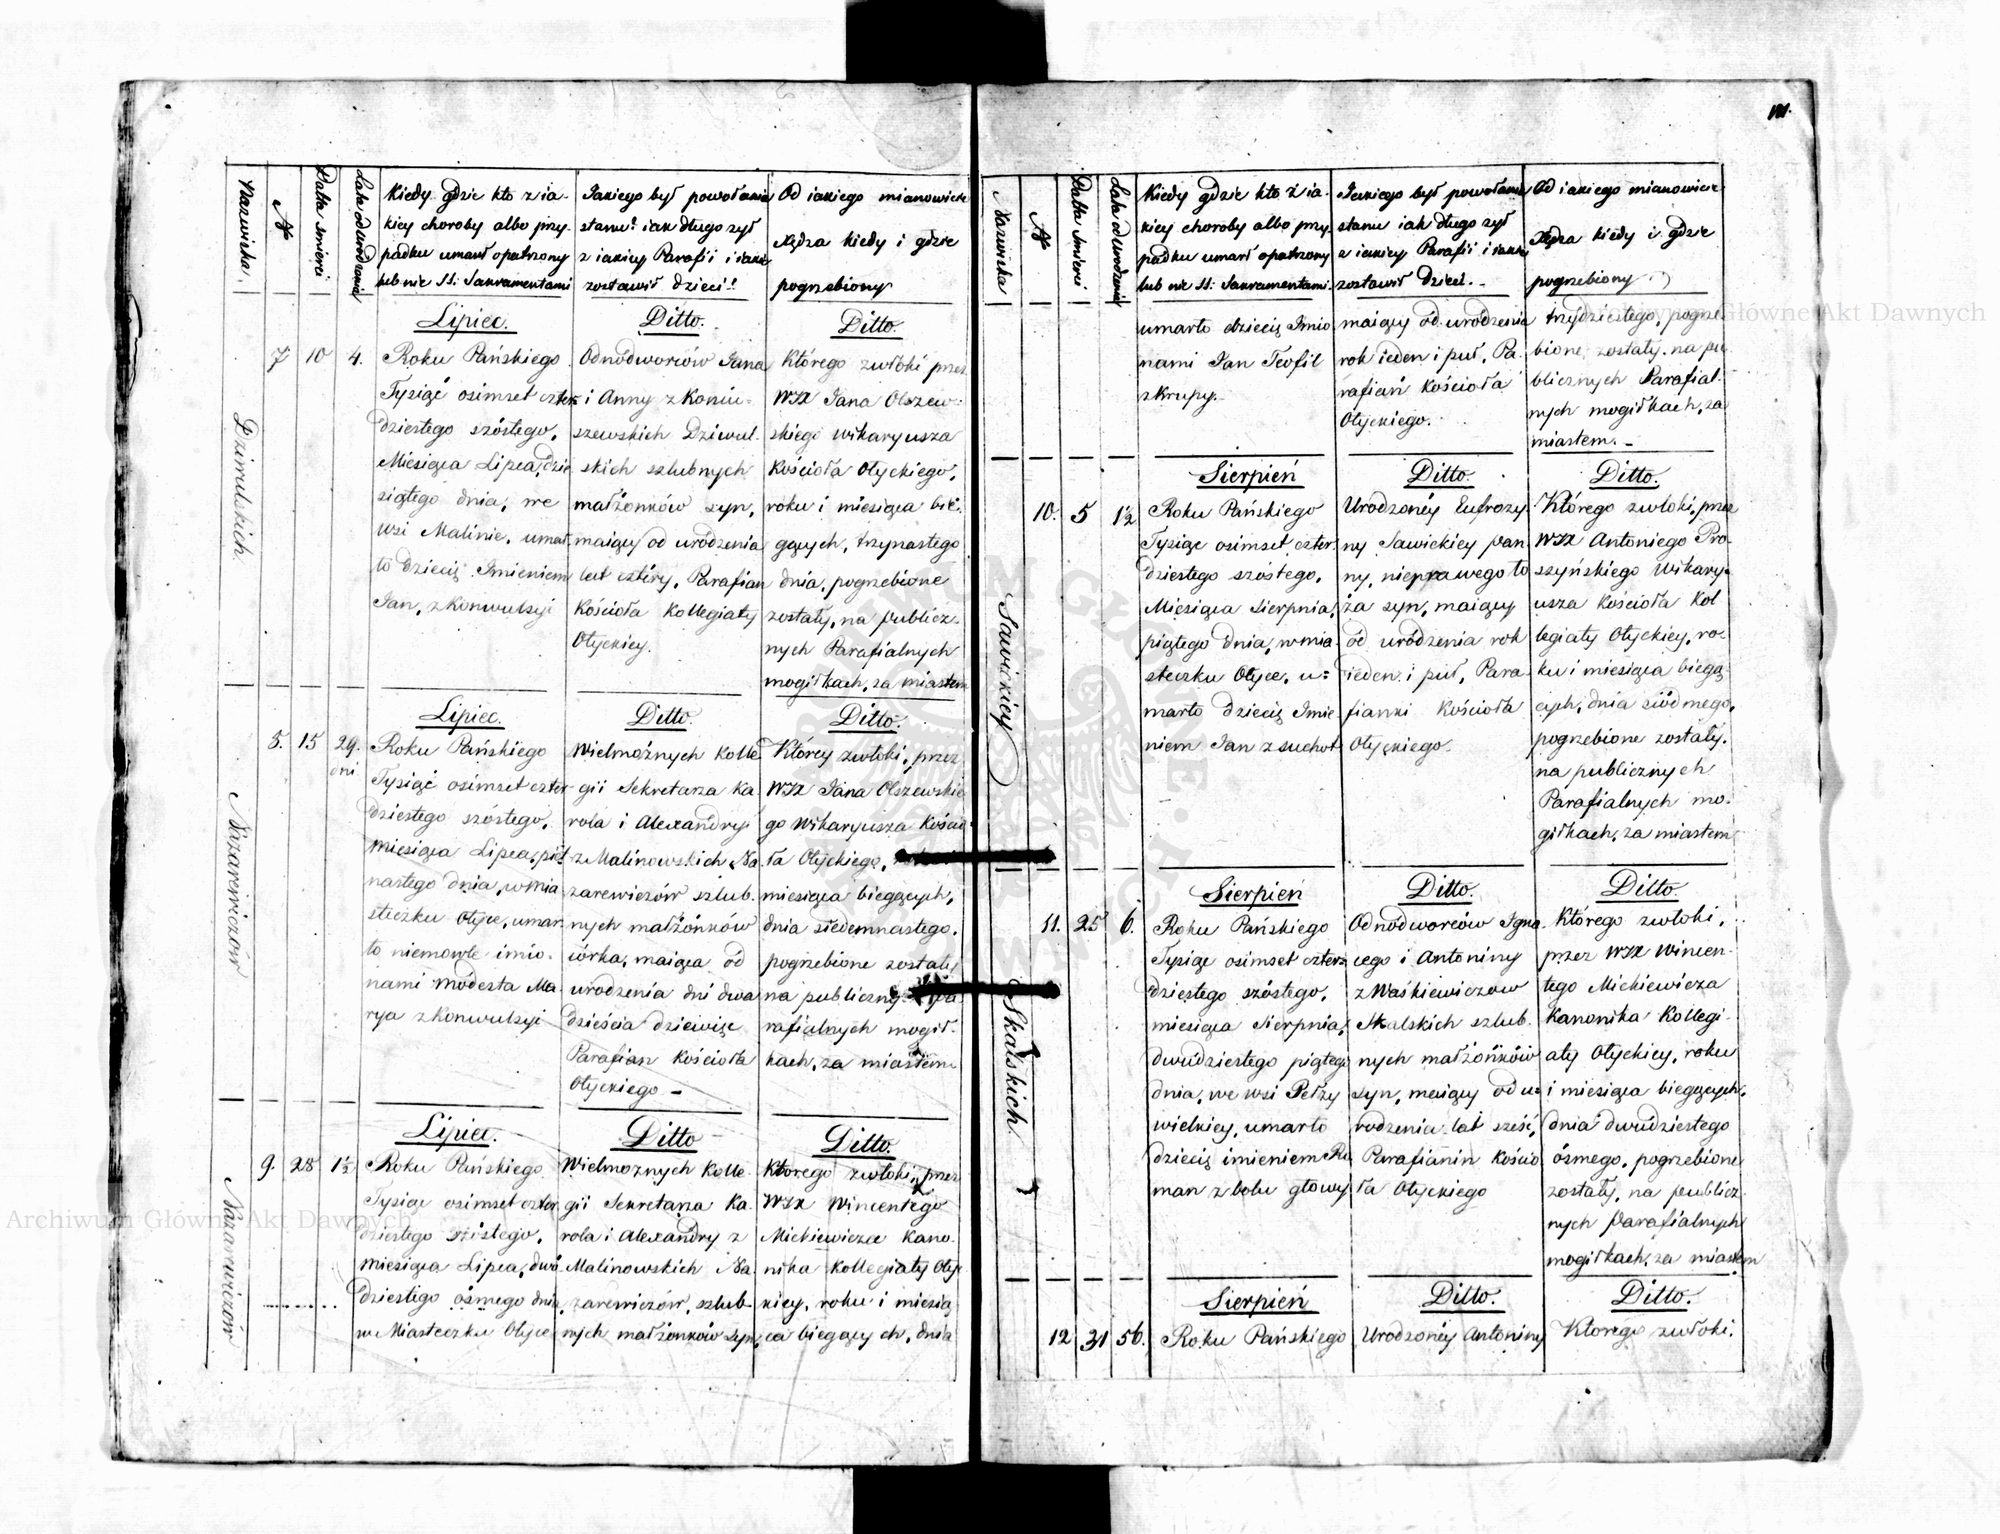 111.
Nazwiska
№
Datta śmierci
Lata od urodzenia
Kiedy gdzie kto z ia-
kiey choroby albo przy-
padku umarł opatrzony
lub nie SS: Sakramentami
Jakiego był powołania
stanu? iak długo żył
z iakiey Parafii i iakie
zostawił dzieci!
Od iakiego mianowicie
Xiędza kiedy i gdzie
pogrzebiony
Dziwilskich.
7
10
4.
Lipiec.
Roku Pańskiego
Tysiąć osimset czter-
dziestego szóstego,
Miesiąca Lipca, dzie
siątego dnia, we
wsi Malinie, umar-
ło dziecię Imieniem
Jan, z konwulsyi
Ditto.
Odnódworców Jana
i Anny z Koniu-
szewskich Dziwul-
skich szlubnych
małżonków syn,
maiący od urodzenia
lat cztéry, Parafian
Kościoła Kollegiaty
Ołyckiey.
Ditto.
Którego zwłoki przez
WJX Jana Olszew-
skiego Wikaryusza
Kościoła Ołyckiego,
roku i miesiąca bie-
gących, trzynastego
dnia, pogrzebione
zostały, na publicz-
nych Parafialnych
mogiłkach, za miastem
Nazarewiczów
8.
15
29.
dni
Lipiec.
Roku Pańskiego
Tysiąć osimset czter-
dziestego szóstego,
miesiąca Lipca, pięt-
nastego dnia, w mia-
steczku Ołyce, umar-
ło niemowle imio-
nami Modesta Ma-
rya z konwulsyi
Ditto.
Wielmożnych Kolle-
gii Sekretarza Ka-
rola i Alexandry
z Malinowskich Na-
zarewiczów szlub-
nych małżónków
córka, maiąca od
urodzenia dni dwa
dzieścia dziewięć
Parafian Kościoła
Ołyckiego -
Ditto.
Którey zwłoki, przez
WJX Jana Olszewskie
go Wikaryusza Kościo
ła Ołyckiego,
miesiąca biegących,
dnia siedemnastego,
pogrzebione zostały
na publicznych Pa-
rafialnych mogił-
kach, za miastem
Nazarewiczów
9.
28
1½
Lipiec.
Roku Pańskiego
Tysiąc osimset czter-
dziestego szóstego,
miesiąca Lipca, dwó-
dziestego ósmego dnia,
w Miasteczku Ołyce
Ditto
Wielmożnych Kolle-
gii Sekretarza Ka-
rola i Alexandry z
Malinowskich Na-
zarewiczów, szlub-
nych małżonków syn,
Ditto.
Którego zwłoki, przez
WJX Wincentego
Mickiewicza Kano-
nika Kollegiaty Ołyc-
kiey, roku i miesią
ca biegących, dnia
Nazwiska
№
Datta śmierci
Lata od urodzenia
Kiedy gdzie kto z ia-
kiey choroby albo przy
padku umarł opatrzony
lub nie SS: Sakramentami.
Jakiego był powołania
stanu iak długo żył
z iakiey Parafii i iakie
zostawił Dzieci. -
Od iakiego mianowicie-
Xiędza kiedy i gdzie
pogrzebiony
umarło dziecię Imio
nami Jan Teofil
z krupy.
maiący od urodzenia
rok ieden i puł, Pa-
rafian Kościoła
Ołyckiego.
trzydziestego, pogrze
bione zostały na pu
blicznych Parafial-
nych mogiłkach, za
miastem. -
Sawickiey
10.
5
1½
Sierpień
Roku Pańskiego
Tysiąc osimset czter-
dziestego szóstego,
Miesiąca Sierpnia,
piątego dnia, w mia-
steczku Ołyce, u-
marło dziecię Imie
niem Jan z suchot
Ditto.
Urodzonéy Eufrozy
ny Sawickiey pan-
ny, nieprawego ło
ża syn, maiący
od uródzenia rok
ieden i puł, Para-
fianki Kościoła
Ołyckiego.
Ditto.
Którego zwłoki, przez
WJX Antoniego Pro-
szyńskiego Wikary-
usza Kościoła Kol
legiaty Ołyckiey, ro-
ku i miesiąca biegą
cych, dnia siódmego,
pogrzebione zostały,
na publicznych
Parafialnych mo-
giłkach, za miastem
Skalskich
11.
25
6.
Sierpień
Roku Pańskiego
Tysiąc osimset czter-
dziestego szóstego,
miesiąca Sierpnia,
dwudziestego piątego
dnia, we wsi Pełzy
wielkiey, umarło
dziecię imieniem Ro
man z bolu głowy
Ditto.
Odnódworców Igna-
cego i Antoniny
z Waśkiewiczow
Skalskich szlub-
nych małżonków
syn, maiący od u-
rodzenia lat sześć,
Parafianin Kościo
ła Ołyckiego
Ditto.
Którego zwłoki,
przez WJX Wincen-
tego Mickiewicza
Kanonika Kollegi-
aty Ołyckiey, roku
i miesiąca biegących,
dnia dwudziestego
ósmego, pogrzebione
zostały, na publicz-
nych Parafialnych
mogiłkach, za miastem
12
31
56.
Sierpień
Roku Pańskiego
Ditto.
Urodzonéy Antoniny
Ditto.
Którego zwłoki,
Archiwum Główne Akt Dawnych
Archiwum Główne Akt Dawnych